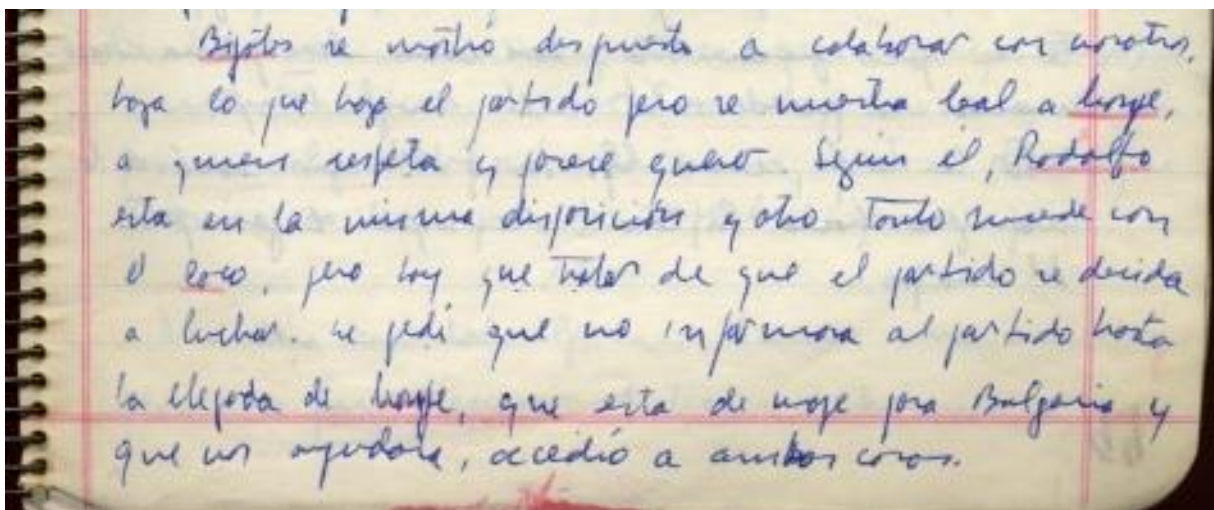 Bigotes se mostró dispuesto a colaborar con nosotros,
haga lo que haga el partido pero se muestra leal a Monje,
a quien respeta y parece querer. Según él, Rodolfo
esta en la misma disposición y otro tanto sucede con
el Coco, pero hay que tratar de que el partido se decida
a luchar. Le pedí que no informara al partido hasta
la llegada de Monje, que esta de viaje para Bulgaria y
que nos ayudara, accedió a ambas cosas.